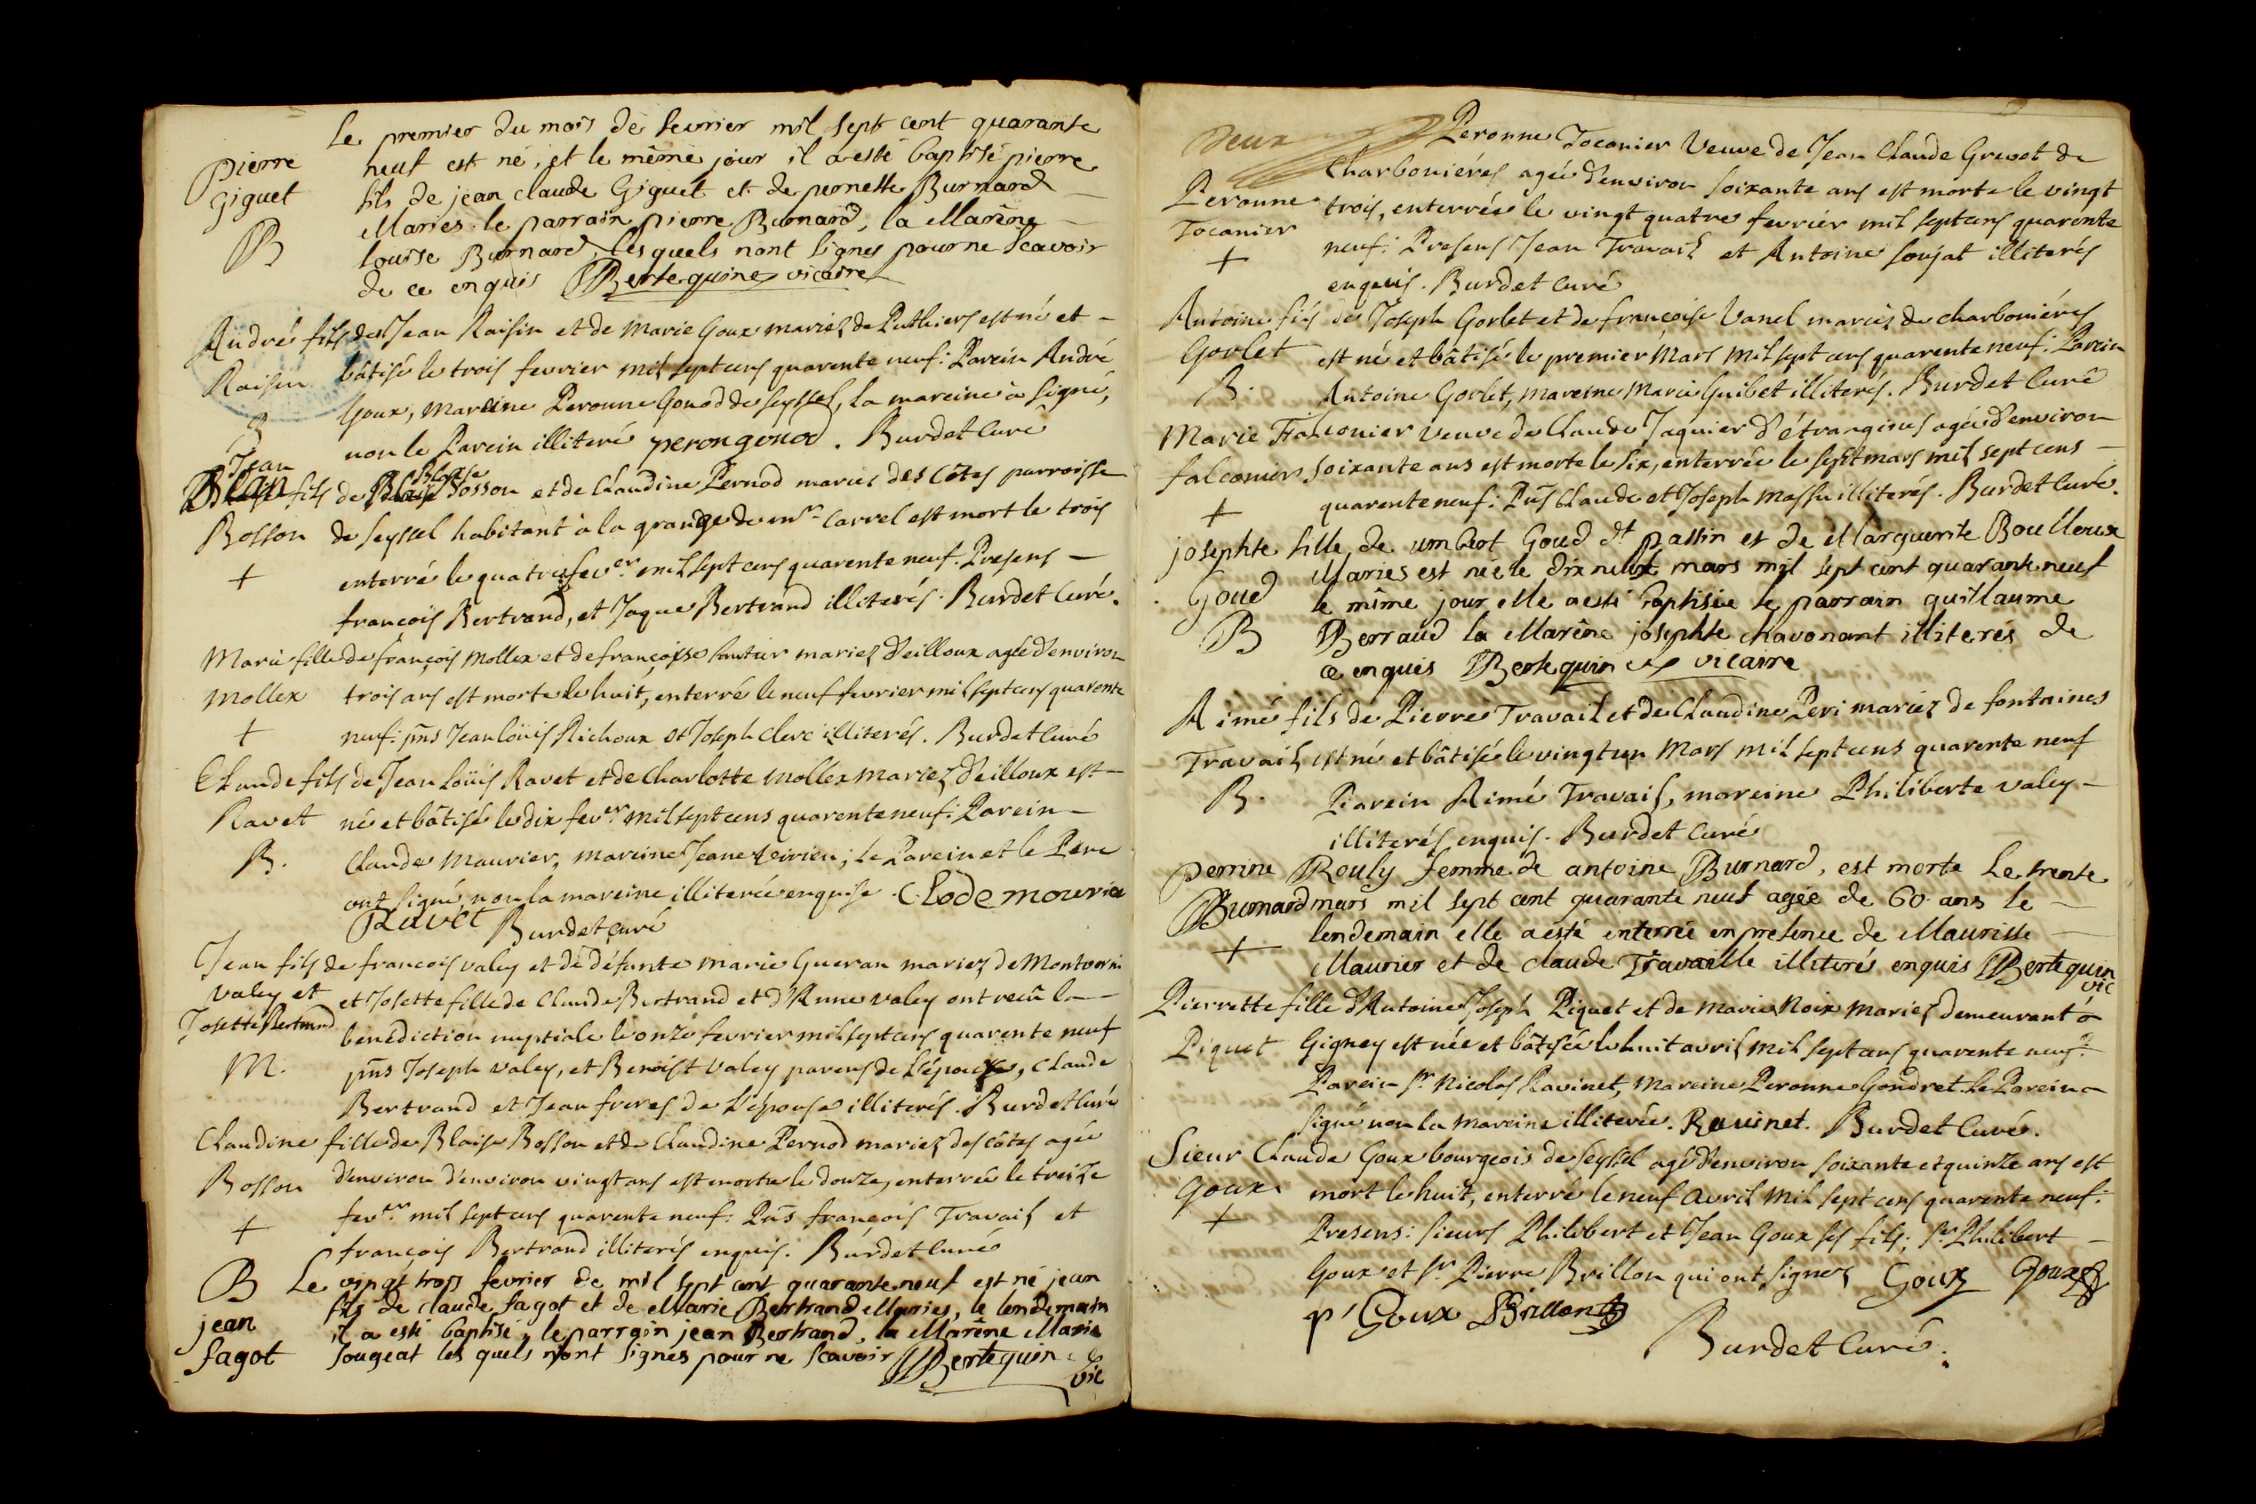 Le premier du mois de fevrier mil sept cent quarante
Pierre neuf est né, et le même jour il a esté baptisé pierre
Giguet fils de jean claude Giguet et de pernette Burnard
Maries. le parrain pierre Burnard, la Marêne
B louise Burnard, lesquels nont signes pour ne scavoir
de ce enquis Bertequine vicaire
André fils de Jean Raisin et de Marie Goux mariez de Puthiers est né et -
Raisin bâtisé le trois fevrier mil sept cens quarente neuf: Parein André
Goux, mareine Peronne Gonod de Seyssel, la mareine à signé,
B non le Parein illiteré perongonod. Burdet Curé
Jean fils de Blaise Bosson et de Claudine Pernod mariez des Côtes parroisse
Bosson de Seyssel habitant à la grange de mr. Carrel est mort le trois
+ enterré le quatre fever. mil sept cens quarente neuf. Presens -
françois Bertrand, et Jaque Bertrand illiterés. Burdet Curé.
Marie fille de françois Mollex et de françoise mariez d'eilloux agée d'environ
Mollex trois ans est morte le huit, enterré le neuf fevrier mil sept cens quarente
+ neuf: pns Jean loüis Richoux et Joseph Clerc illiterés. Burdet Curé
Claude fils de Jean Loüis Ravet et de Charlotte Mollex mariez d'eilloux est -
Ravet né et bâtisé le dix fever. mil sept cens quarente neuf: Parein -
B. Claude Maurier, mareine Jeane ; le Parein et le Pere
ont signé, non la mareine illiterée enquise. Clode mourie
Ravet Burdet curé
Jean fils de francois Valey et de défunte Marie Gueran mariez de
Valey et et Josette fille de Claude Bertrand et d'Anne Valey ont recû la -
Josette Bertrand benédiction nuptiale le onze fevrier mil sept cens quarente neuf
M. pns Joseph Valey, et Benoist Valey parens de l'époux, Claude
Bertrand et Jean freres de l'épouse illiterés. Burdet Curé
Claudine fille de Blaise Bosson et de Claudine Pernod mariez des côtes agée
Bosson d'environ d'environ vingt ans est morte le douze, enterrée le treize
+ fever. mil sept cens quarente neuf: Pns françois Travail et
françois Bertrand illiterés enquis. Burdet Curé
B Le vingt trois fevrier de mil sept cent quarante neuf est né jean
fils de claude fagot et de Marie Bertrand Maries, le lendemain
jean il a esté baptisé, le parrain jean Bertrand, la Marêne Marie
fagot Sougeat les quels nont signés pour ne scavoir Bertequin
vic
Deux Peronne Tocanier Veuve de Jean Claude Grevot de
Charboniéres agée d'environ soixante ans est morte le vingt
Peronne trois, enterrée le vingt quatre fevrier mil sept cens quarente
Tocanier neuf: Presens Jean Travail et Antoine Soujat illiterés
+ enquis. Burdet Curé
Antoine fils de Joseph Gorlet et de françoise Vanel mariez de Charboniéres
Gorlet est né et bâtisé le premier Mars mil sept cens quarente neuf: Parein
B. Antoine Gorlet, mareine Marie Guibet illiterés. Burdet Curé
Marie Falconier veuve de Claude Jaquier d'étrangines agée d'environ
falconier soixante ans est morte le six, enterrée le sept mars mil sept cens -
+ quarente neuf: Pns Claude et Joseph Massu illiterés. Burdet Curé.
josephte fille de umbert Goud dt passin et de Marguerite Boulloux
Maries est née le dix neuf mars mil sept cent quarante neuf
Goud le même jour elle a esté baptisée le parrain guillaume
B Berraud la Marêne josephte chavonant illiterés de
ce enquis Bertequin vicaire
Aimé fils de Pierre Travail et de Claudine Peri mariez de fontaines
Travail est né et bâtisé le vingt un Mars mil sept cens quarente neuf
B. Parein Aimé Travail, mareine Philiberte Valey -
illiterés enquis. Burdet Curé
Perrine Rouly femme de antoine Burnard, est morte Le trente
Burnard mars mil sept cent quarante neuf agée de 60 ans le -
+ lendemain elle a esté enterrée en presence de Maurisse -
Maurier et de claude Travaille illiterés enquis Bertequin
vic
Pierrette fille d'Antoine Joseph Piquet et de Marie Noix mariez demeurant à
Piquet Gigney est née et bâtisée le huit avril mil sept cens quarente neuf:
Parein sr Nicolas Ravinet, Mareine Peronne Gondret. Le Parein a
signé non la Mareine illiterée. Rauinet. Burdet Curé.
Sieur Claude Goux bourgeois de Seyssel agé d'environ soixante et quinze ans est
Goux mort le huit, enterré le neuf Avril mil sept cens quarente neuf:
+ Presens: Sieurs Philibert et Jean Goux ses fils; sr Philibert -
Goux et sr Pierre Brillon qui ont signez Goux Goux
p' Goux Brillon
Burdet Curé.